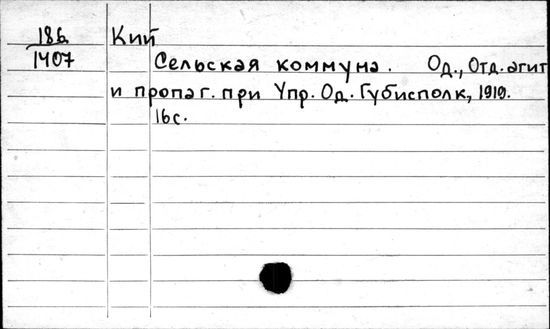 186 Кий
1407 Сельская коммуна. Од., Отд. агит
и пропаг. при Упр. Од. Губисполк, 1919.
16с.